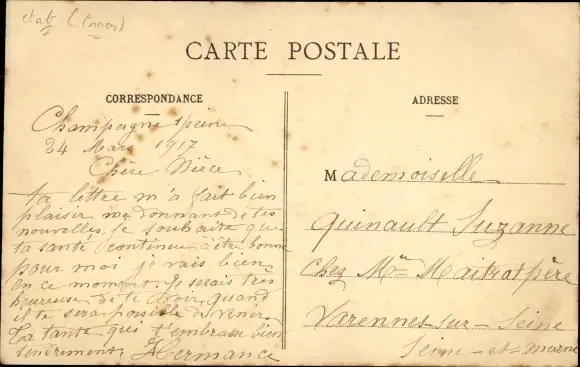 CARTE POSTALE
CORRESPONDANCE
Champagne s/seine
24 Mars 1917
Chère Nièce
ta lettre m'a fait bien
plaisir me donnant de tes
nouvelles. Je souhaite que
ta santé continue à être bonne
pour moi je vais bien
en ce moment. Je serais très
heureuse de te voir quand
il te sera possible de venir.
Ta tante qui t'embrasse bien
tendrement Hermance
ADRESSE
Mademoiselle
Quinault Suzanne
chez Mr Maitrat père
Varennes-sur-Seine
Seine-et-marne